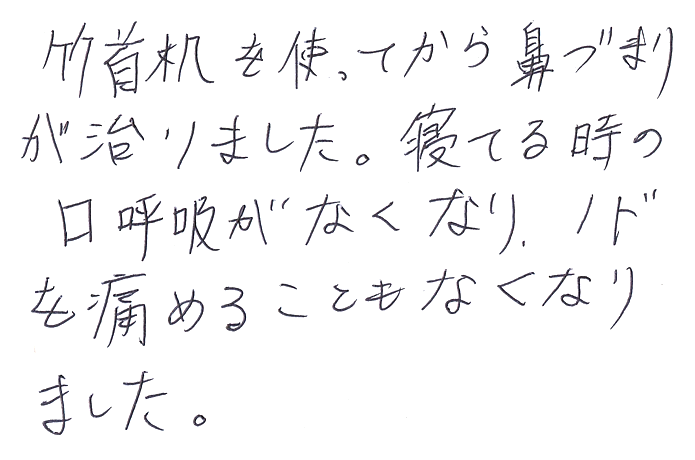 竹首机を使ってから鼻づまり
が治りました。寝てる時の
口呼吸がなくなり、ノド
を痛めることもなくなり
ました。